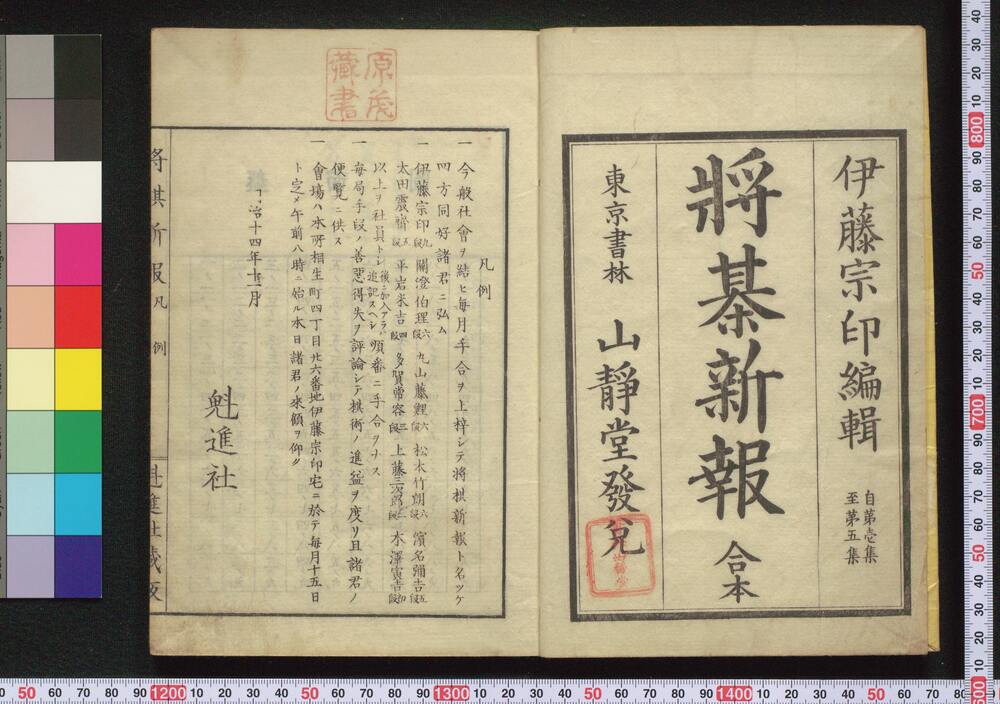 伊藤宗印編輯
自第壱集
至第五集
將棊新報 合本
東京書林 山静堂發兌
原茂
藏書
凡例
一 今般社會ヲ結ヒ毎月手合ヲ上梓シテ将棋新報ト名ツケ
四方同好諸君ニ弘ム
一 伊藤宗印九段 關澄伯理六段 丸山藤鯉六段 松本竹朗六段 濱名彌吉五段
太田震齋五段 平岩米吉四段 多賀常容三段 上藤三次郎二段 木澤寅吉初段
以上ヲ社員トシ後ニ加入アラハ追記スヘシ順番ニ手合ヲナス
一 毎局手段ノ善惡得失ヲ評論シテ棋術ノ進益ヲ度リ且諸君ノ
便覧ニ供ス
一 會場ハ本所相生町四丁目廿六番地伊藤宗印宅ニ於テ毎月十五日
ト定メ午前八時ニ始ル本日諸君ノ來顧ヲ仰グ
明治十四年十一月
魁進社
将棋新報 凡例
魁進社蔵版